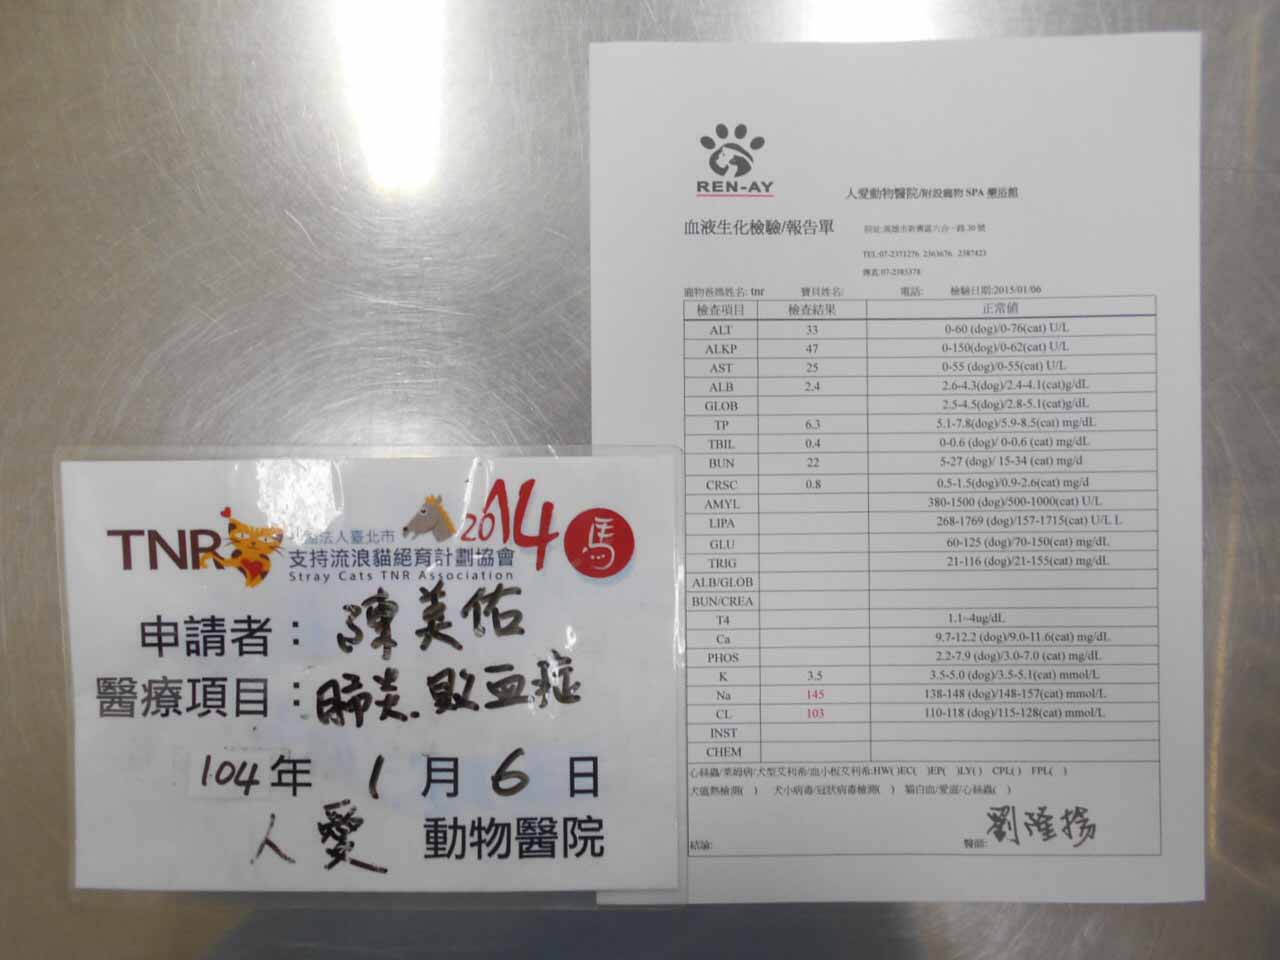 TNR
社團法人臺北市
支持流浪貓絕育計劃協會
Stray Cats TNR Association
2014 馬
申請者：陳美佑
醫療項目：肺炎.敗血症
104年 1月 6日
人愛 動物醫院
REN-AY
人愛動物醫院/附設寵物 SPA 藥浴館
血液生化檢驗/報告單
院址:高雄市新興區六合一路30號
TEL:07-2371276. 2363676. 2387423
傳真:07-2383378
寵物爸媽姓名: tnr 寶貝姓名: 電話: 檢驗日期:2015/01/06
檢查項目 檢查結果 正常値
ALT 33 0-60 (dog)/0-76(cat) U/L
ALKP 47 0-150(dog)/0-62(cat) U/L
AST 25 0-55 (dog)/0-55(cat) U/L
ALB 2.4 2.6-4.3(dog)/2.4-4.1(cat)g/dL
GLOB 2.5-4.5(dog)/2.8-5.1(cat)g/dL
TP 6.3 5.1-7.8(dog)/5.9-8.5(cat) mg/dL
TBIL 0.4 0-0.6 (dog)/ 0-0.6 (cat) mg/dL
BUN 22 5-27 (dog)/ 15-34 (cat) mg/d
CRSC 0.8 0.5-1.5(dog)/0.9-2.6(cat) mg/d
AMYL 380-1500 (dog)/500-1000(cat) U/L
LIPA 268-1769 (dog)/157-1715(cat) U/L L
GLU 60-125 (dog)/70-150(cat) mg/dL
TRIG 21-116 (dog)/21-155(cat) mg/dL
ALB/GLOB
BUN/CREA
T4 1.1~4ug/dL
Ca 9.7-12.2 (dog)/9.0-11.6(cat) mg/dL
PHOS 2.2-7.9 (dog)/3.0-7.0 (cat) mg/dL
K 3.5 3.5-5.0 (dog)/3.5-5.1(cat) mmol/L
Na 145 138-148 (dog)/148-157(cat) mmol/L
CL 103 110-118 (dog)/115-128(cat) mmol/L
INST
CHEM
心絲蟲/萊姆病/犬型艾利希/血小板艾利希:HW( )EC( )EP( )LY( ) CPL( ) FPL( )
犬瘟熱檢測( ) 犬小病毒/冠狀病毒檢測( ) 貓白血/愛滋/心絲蟲( )
結論: 醫師: 劉隆揚